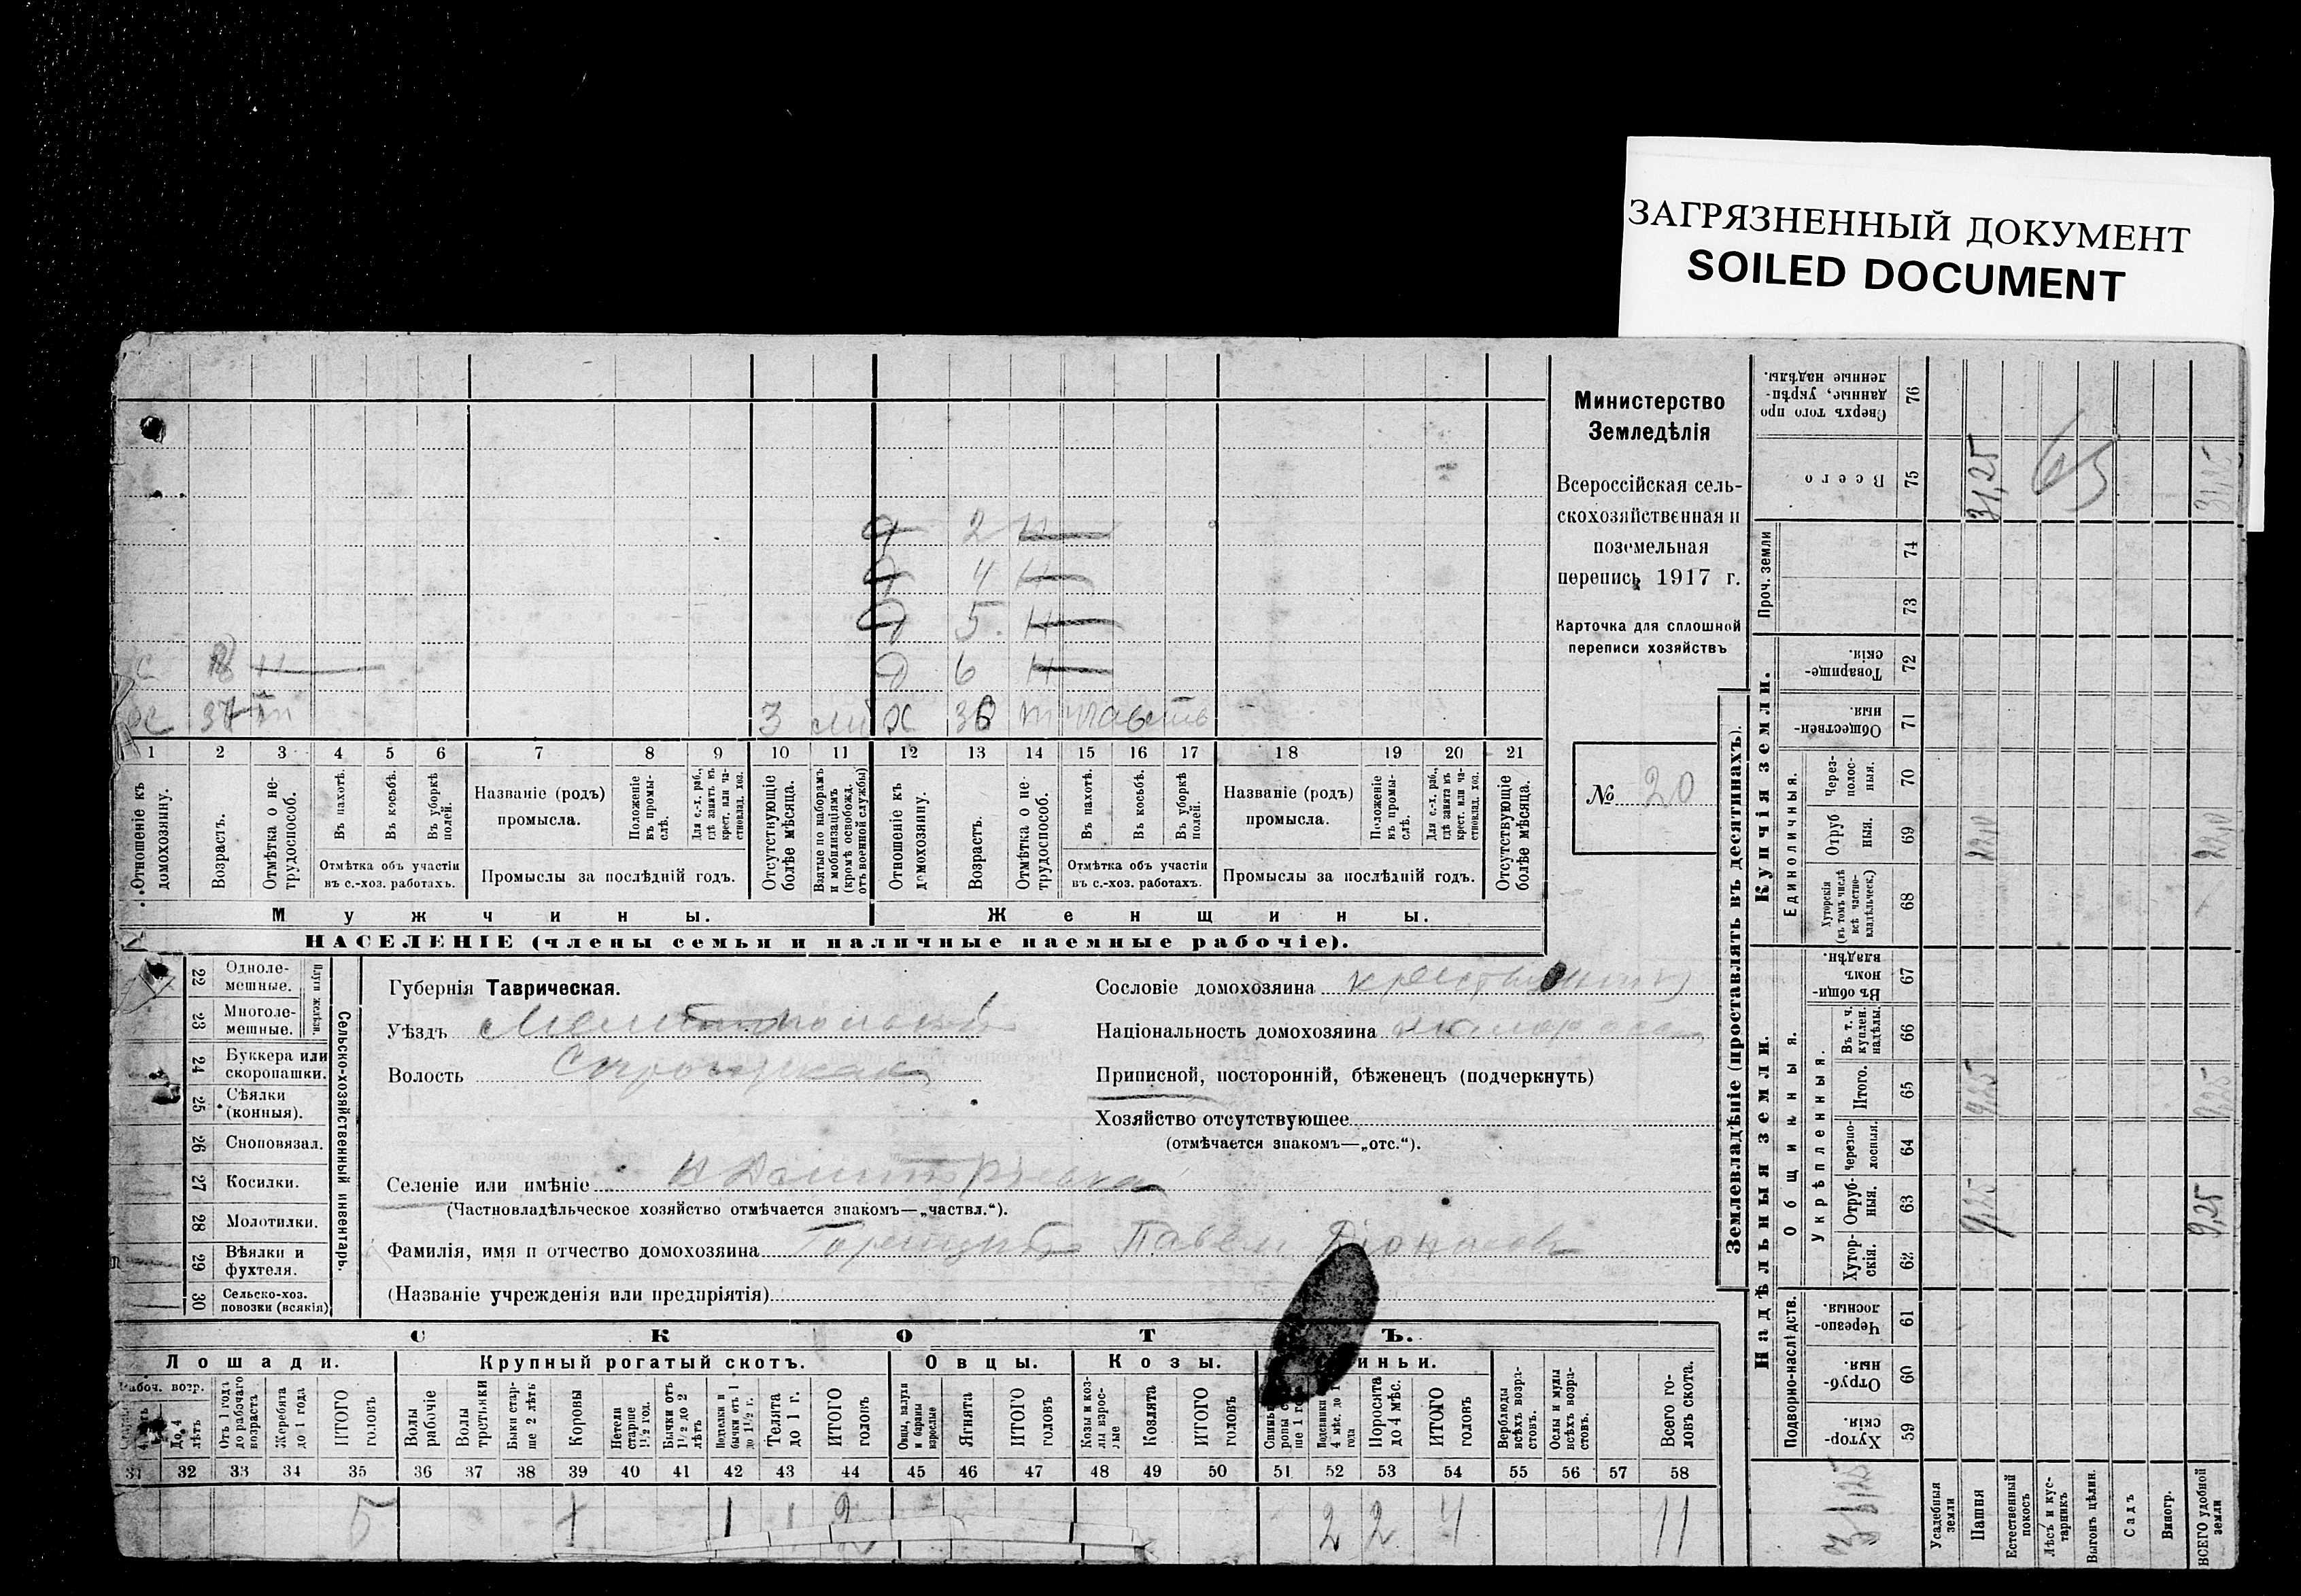 ЗАГРЯЗНЕННЫЙ ДОКУМЕНТ
SOILED DOCUMENT
Министерство
Земледѣлія
Всероссійская сель-
скохозяйственная и
поземельная
перепись 1917 г.
Карточка для сплошной
переписи хозяйствъ
№ 20
д 2 н
д 4 н
д 5 н
д 6 н
с н
х 3 х
1 2 3 4 5 6 7 8 9 10 11 12 13 14 15 16 17 18 19 20 21
Отношеніе къ домохозяину.
Возрастъ.
Отмѣтка о не-трудоспособ.
Въ пахотѣ.
Въ косьбѣ.
Въ уборкѣ полей.
Отмѣтка объ участіи
въ с.-хоз. работахъ.
Названіе (родъ)
промысла.
Положеніе въ промы-слѣ.
Для с.-х. раб., гдѣ занятъ въ крест. или ча-стновлад. хоз.
Промыслы за послѣдній годъ.
Отсутствующіе болѣе мѣсяца.
Взятые по наборамъ и мобилизаціямъ (кромѣ освобожд. отъ военной службы)
Отношеніе къ домохозяину.
Возрастъ.
Отмѣтка о не-трудоспособ.
Въ пахотѣ.
Въ косьбѣ.
Въ уборкѣ полей.
Отмѣтка объ участіи
въ с.-хоз. работахъ.
Названіе (родъ)
промысла.
Положеніе въ промы-слѣ.
Для с.-х. раб., гдѣ занята въ крест. или ча-стновлад. хоз.
Промыслы за послѣдній годъ.
Отсутствующіе болѣе мѣсяца.
Мужчины.
Женщины.
НАСЕЛЕНІЕ (члены семьи и наличные наемные рабочіе).
22 Одноле-мешные.
23 Многоле-мешные.
24 Буккера или скоропашки.
25 Сѣялки (конныя).
26 Сноповязал.
27 Косилки.
28 Молотилки.
29 Вѣялки и фухтеля.
30 Сельско-хоз. повозки (всякія)
Сельско-хозяйственный инвентарь.
Губернія Таврическая.
Уѣздъ Мелитопольскій
Волость
Селеніе или имѣніе
(Частновладѣльческое хозяйство отмѣчается знакомъ—„частвл.“).
Фамилія, имя и отчество домохозяина Павелъ
(Названіе учрежденія или предпріятія)
Сословіе домохозяина крестьянинъ
Національность домохозяина малороссъ
Приписной, посторонній, бѣженецъ (подчеркнуть)
Хозяйство отсутствующее
(отмѣчается знакомъ—„отс.“).
СКОТЪ.
Лошади. Крупный рогатый скотъ. Овцы. Козы.
До 4 лѣтъ
Отъ 1 года до рабочаго возраста
Жеребята до 1 года
ИТОГО головъ
Волы рабочіе
Волы третьяки
Быки стар-ше 2 лѣтъ
Коровы
Нетели старше 1½ год.
Бычки отъ 1½ до 2 лѣтъ
Телята до 1 г.
ИТОГО головъ
Овцы, валухи и бараны взрослые
Ягнята
ИТОГО головъ
Козы и коз-лы взрос-лые
Козлята
ИТОГО головъ
Поросята до 4 мѣс.
ИТОГО головъ
Верблюды всѣхъ возра-стовъ.
Ослы и мулы всѣхъ возра-стовъ.
Всего го-ловъ скота.
31 32 33 34 35 36 37 38 39 40 41 42 43 44 45 46 47 48 49 50 51 52 53 54 55 56 57 58
5 1 1 2 2 2 4 11
Землевладѣніе (проставлять въ десятинахъ).
Надѣльныя земли.
Купчія земли.
Проч. земли
Подворно-наслѣдств.
Общинныя.
Укрѣпленныя.
Единоличныя.
Хутор-скія. 59
Отруб-ныя. 60
Черезпо-лосныя. 61
Хутор-скія. 62
Отруб-ныя. 63
Черезпо-лосныя. 64
Итого. 65
Въ т. ч. куплен. надѣлы. 66
Въ общи-номъ владѣн. 67
Хуторскія (въ томъ числѣ всѣ частно-владѣльческ.) 68
Отрубныя. 69
Через-полос-ныя. 70
Обществен-ныя. 71
Товарище-скія. 72
73
74
Всего 75
Сверхъ того про данные, укрѣп-ленные надѣлы. 76
Усадебныя земли
Пашня 9,25 9,25 31,25
Естественный покосъ
Лѣсъ и кус-тарникъ
Выгонъ цѣлин.
Садъ
Виногр.
ВСЕГО удобной земли 9,25 9,25 31,25